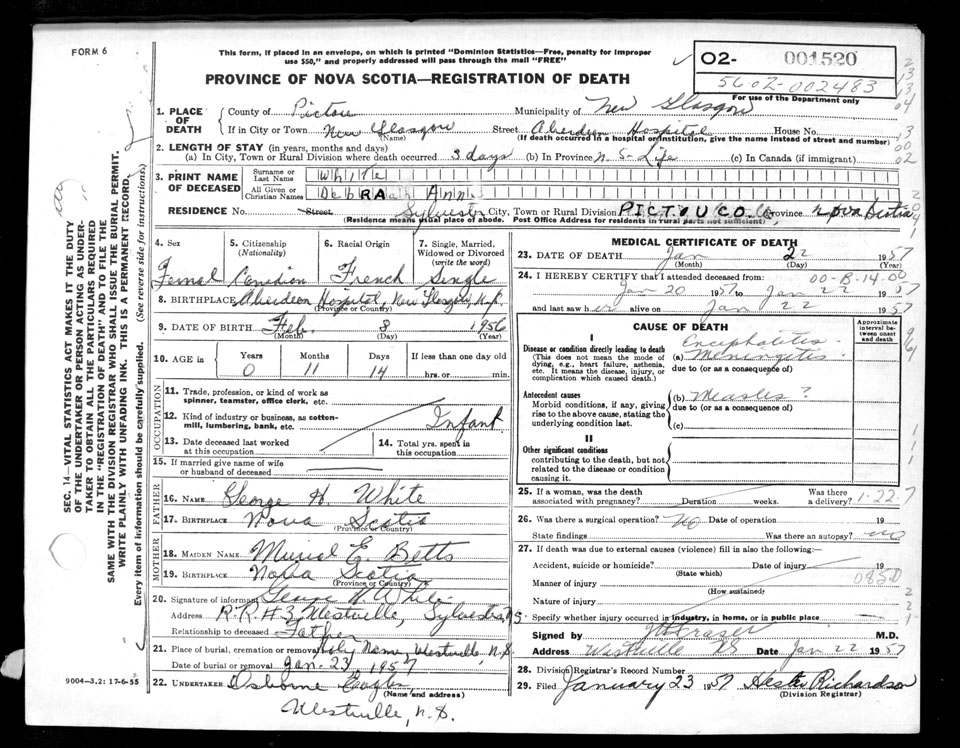 FORM 6
This form, if placed in an envelope, on which is printed "Dominion Statistics—Free, penalty for improper
use $50," and properly addressed will pass through the mail "FREE"
PROVINCE OF NOVA SCOTIA—REGISTRATION OF DEATH
02- 001520
5602-002483
For use of the Department only
1. PLACE OF DEATH
County of Pictou Municipality of New Glasgow
If in City or Town New Glasgow Street Aberdeen Hospital House No.
(Name) (If death occurred in a hospital or institution, give the name instead of street and number)
2. LENGTH OF STAY (in years, months and days)
(a) In City, Town or Rural Division where death occurred 3 days (b) In Province N. S- Life (c) In Canada (if immigrant)
3. PRINT NAME OF DECEASED
Surname or Last Name White
All Given or Christian Names DebRAh Ann
RESIDENCE No. Street Sylvester City, Town or Rural Division PICTOU CO. Province Nova Scotia
(Residence means usual place of abode. Post Office Address for residents in rural parts not sufficient)
4. Sex Femal
5. Citizenship (Nationality) Canadian
6. Racial Origin French
7. Single, Married, Widowed or Divorced (write the word) Single
8. BIRTHPLACE Aberdeen Hospital, New Glasgow, N.S.
(Province or Country)
9. DATE OF BIRTH Feb. 8 1956
(Month) (Day)
10. AGE in Years 0 Months 11 Days 14 If less than one day old hrs. or min.
OCCUPATION
11. Trade, profession, or kind of work as spinner, teamster, office clerk, etc.
12. Kind of industry or business, as cotton-mill, lumbering, bank, etc. Infant
13. Date deceased last worked at this occupation
14. Total yrs. spent in this occupation
15. If married give name of wife or husband of deceased
FATHER
16. NAME George H. White
17. BIRTHPLACE Nova Scotia
(Province or Country)
MOTHER
18. MAIDEN NAME Muriel E. Betts
19. BIRTHPLACE Nova Scotia
(Province or Country)
20. Signature of informant George H. White
Address R.R.#3, Westville, Sylvester, N.S.
Relationship to deceased Father
21. Place of burial, cremation or removal Holy Name, Westville, N.S.
Date of burial or removal Jan-23, 1957
22. UNDERTAKER Osborne
(Name and address)
Westville, N.S.
MEDICAL CERTIFICATE OF DEATH
23. DATE OF DEATH Jan 22 1957
(Month) (Day) (Year)
24. I HEREBY CERTIFY that I attended deceased from: 00-B-14-00
Jan 20 1957 to Jan 22 1957
and last saw her alive on Jan 22 1957
CAUSE OF DEATH
Approximate interval between onset and death
I
Disease or condition directly leading to death
(This does not mean the mode of dying, e.g., heart failure, asthenia, etc. It means the disease, injury, or complication which caused death.)
Encephalitis-
(a) Meningitis
due to (or as a consequence of)
Antecedent causes
Morbid conditions, if any, giving rise to the above cause, stating the underlying condition last.
(b) Measles?
due to (or as a consequence of)
(c)
II
Other significant conditions
contributing to the death, but not related to the disease or condition causing it.
25. If a woman, was the death associated with pregnancy? Duration weeks. Was there a delivery? 1-22-7
26. Was there a surgical operation? No Date of operation 19
State findings Was there an autopsy? no
27. If death was due to external causes (violence) fill in also the following:—
Accident, suicide or homicide? Date of injury 19
(State which)
Manner of injury 0850
(How sustained)
Nature of injury
Specify whether injury occurred in industry, in home, or in public place
Signed by Fraser M.D.
Address Westville NS Date Jan 22 1957
28. Division Registrar's Record Number
29. Filed January 23 1957 Hester Richardson
(Division Registrar)
9004—3.2: 17-6-55
SEC. 14—VITAL STATISTICS ACT MAKES IT THE DUTY
OF THE UNDERTAKER OR PERSON ACTING AS UNDER-
TAKER TO OBTAIN ALL THE PARTICULARS REQUIRED
IN THE "REGISTRATION OF DEATH" AND TO FILE THE
SAME WITH THE DIVISION REGISTRAR WHO SHALL ISSUE THE BURIAL PERMIT.
WRITE PLAINLY WITH UNFADING INK. THIS IS A PERMANENT RECORD.
Every item of information should be carefully supplied. (See reverse side for instructions)